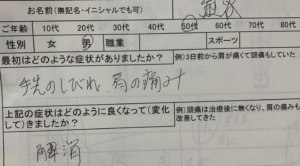 お名前(無記名・イニシャルでも可)
ご年齢 10代 20代 30代 40代 50代 60代 70代 80代
性別 女 男 職業 スポーツ
最初はどのような症状がありましたか? 例)3日前から肩が痛くて頭痛もしていた
手先のしびれ、肩の痛み
上記の症状はどのように良くなって(変化して)きましたか? 例)頭痛は治療後に無くなり、肩の痛みも改善してきた
解消